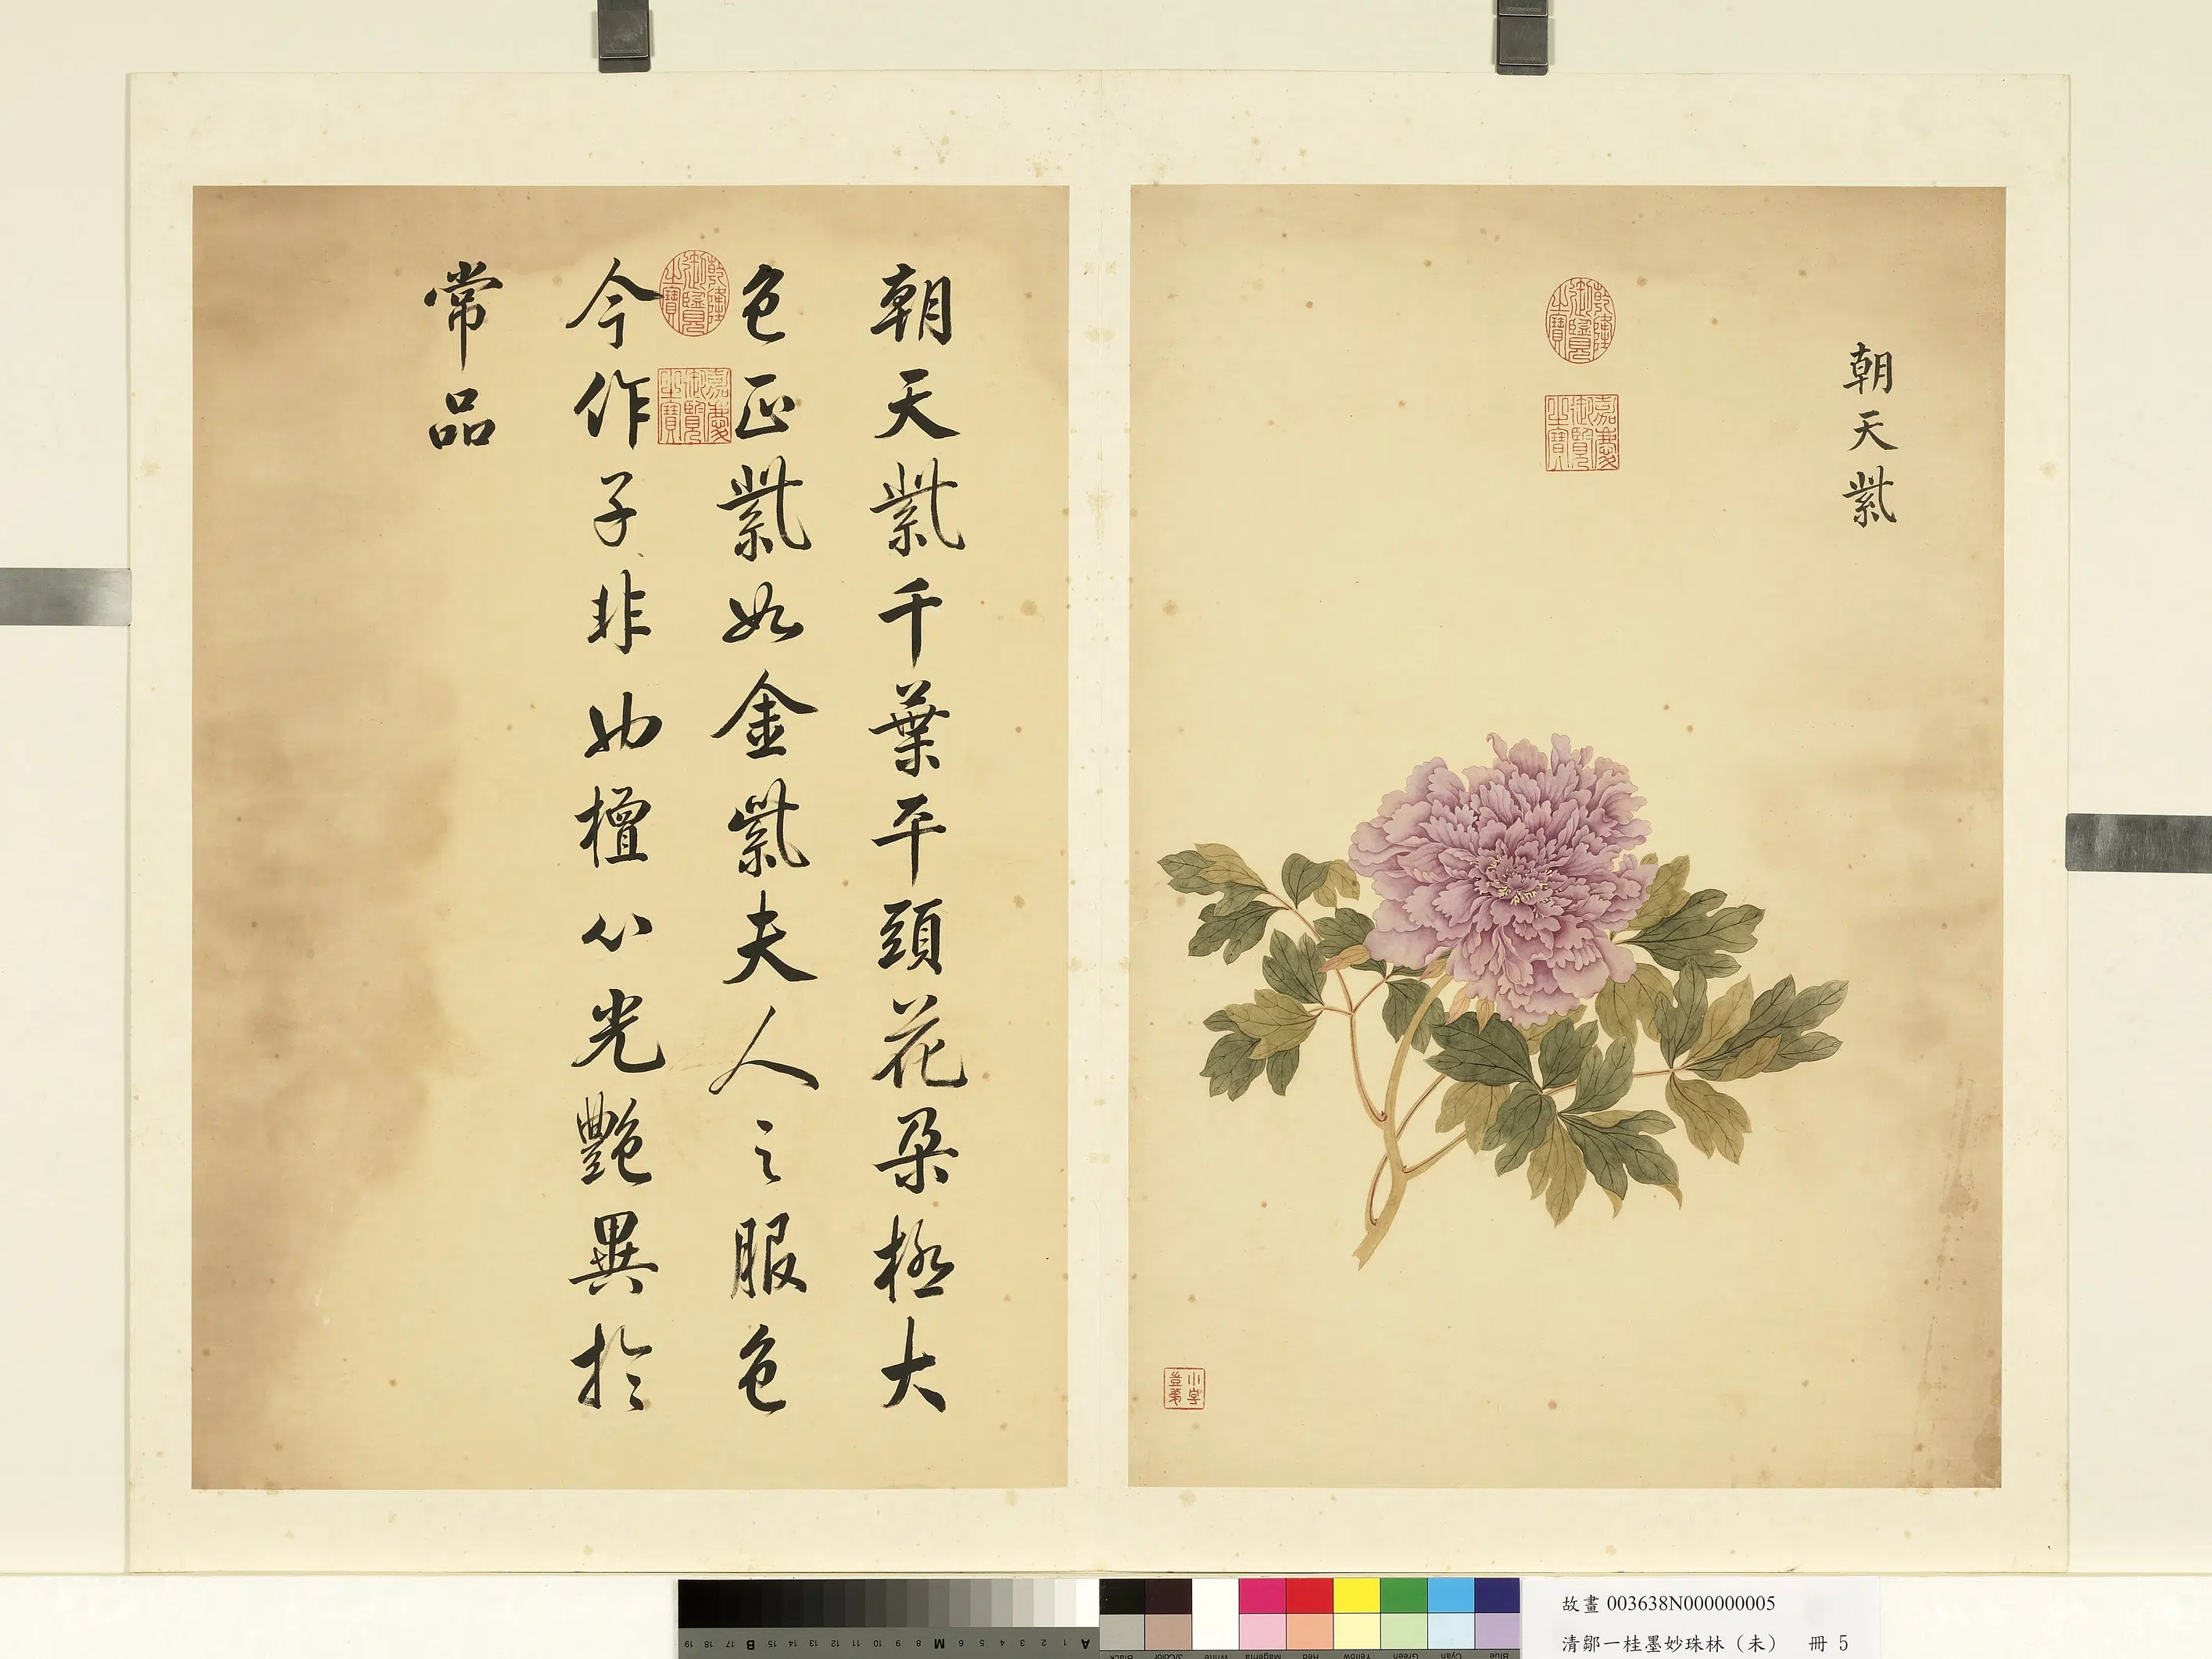 朝天紫
乾隆御覽之寶
嘉慶御覽之寶
小字豈弟
朝天紫千葉平頭花朶極大
色正紫如金紫夫人之服色
今作子非也檀心光艷異於
常品
乾隆御覽之寶
嘉慶御覽之寶
19 18 17 B 15 14 13 12 11 10 9 8 M 6 5 4 3 2 1 A
Black 3/Color White Magenta Red Yellow Green Cyan Blue
故畫 003638N000000005
清鄒一桂墨妙珠林（未） 冊 5